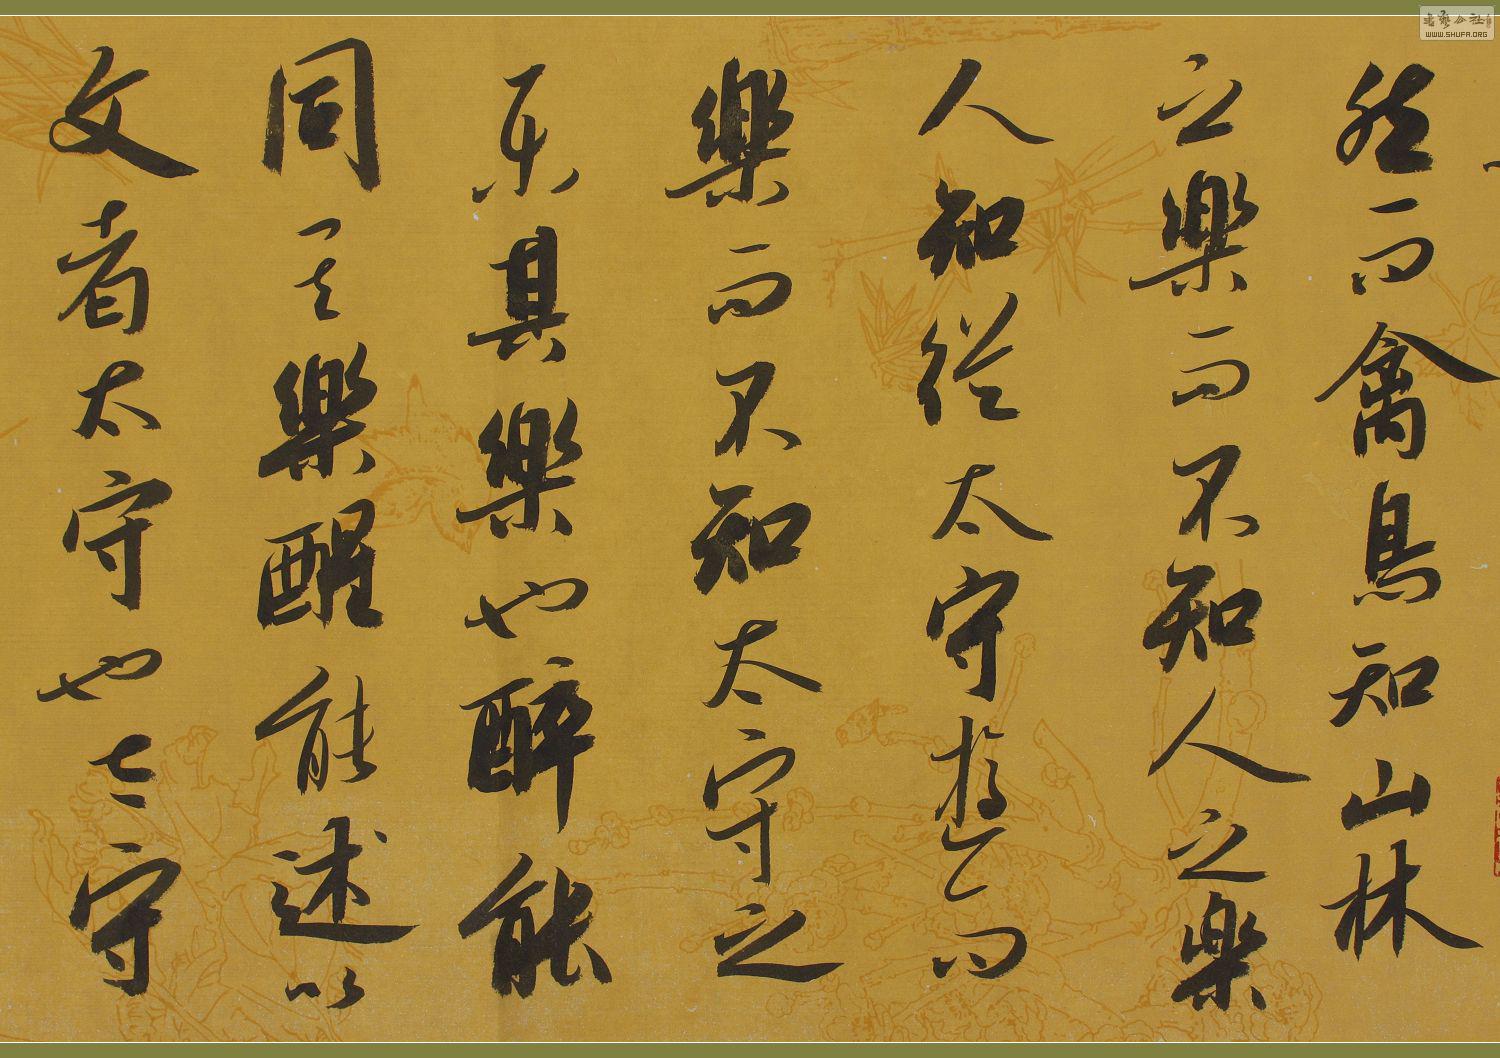 然而禽鳥知山林
之樂而不知人之樂
人知從太守遊而
樂而不知太守之
樂其樂也醉能
同其樂醒能述以
文者太守也太守
書艺公社
WWW.SHUFA.ORG